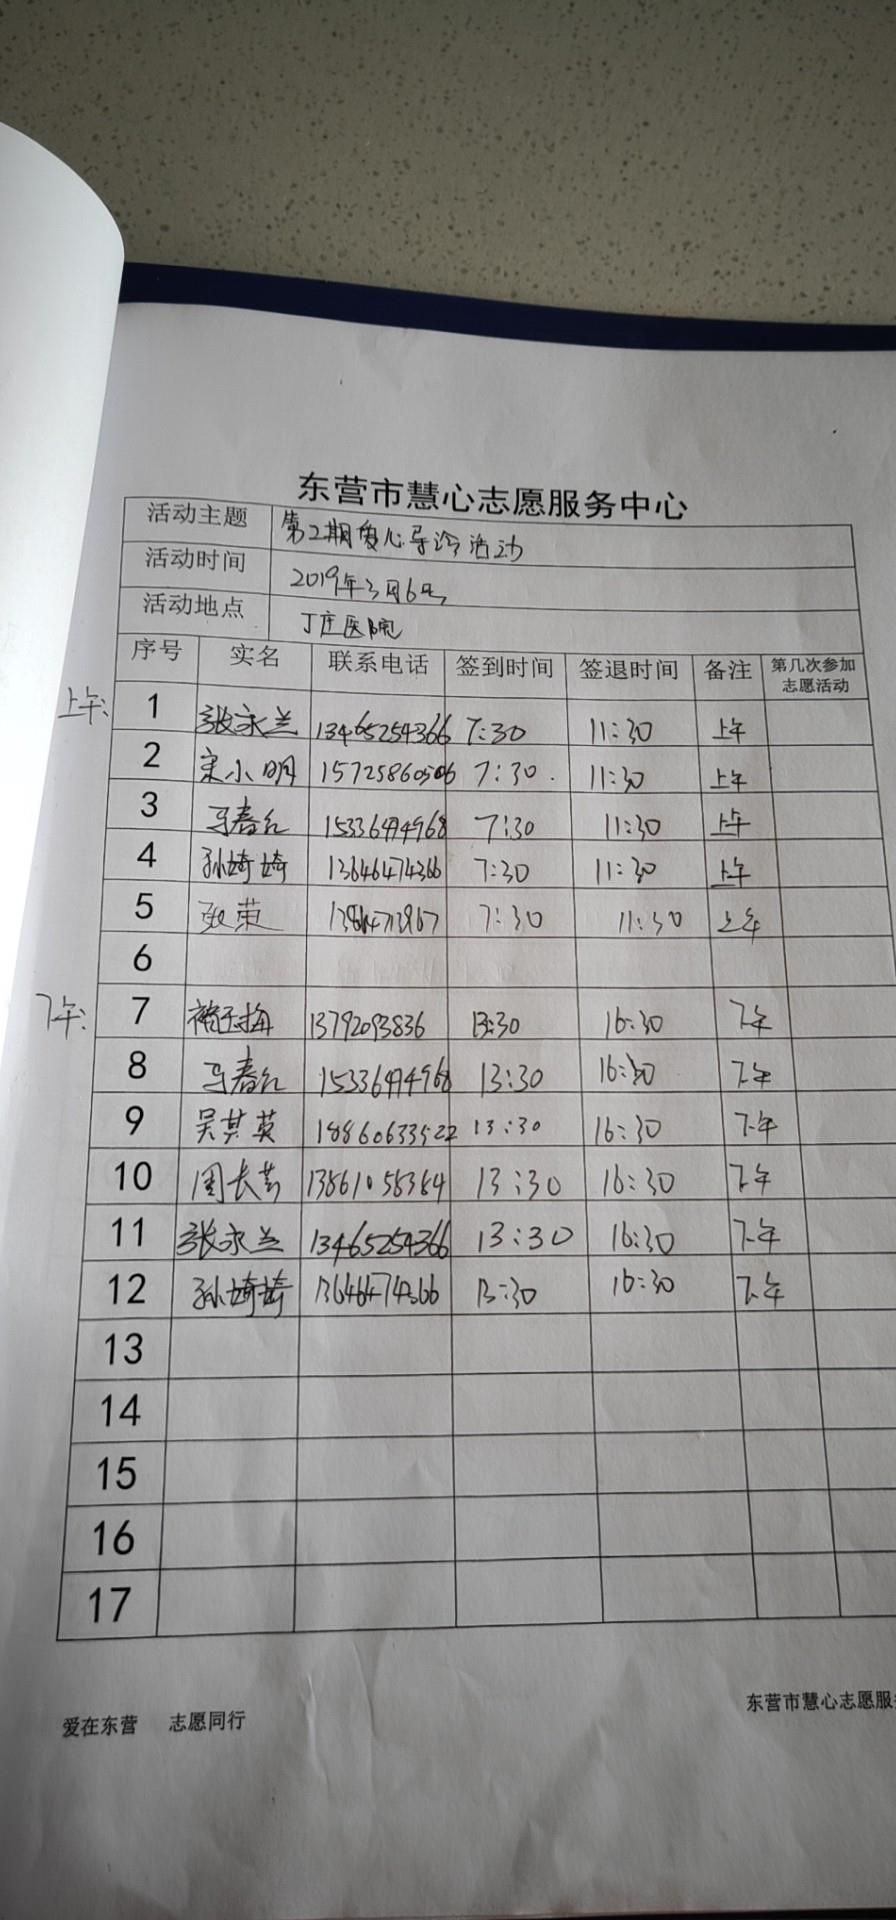 东营市慧心志愿服务中心
活动主题 第2期爱心导诊活动
活动时间 2019年3月6号
活动地点 丁庄医院
序号 实名 联系电话 签到时间 签退时间 备注 第几次参加志愿活动
上午: 1 张永兰 13465254366 7:30 11:30 上午
2 宋小明 15725860506 7:30 11:30 上午
3 马春红 15336474968 7:30 11:30 上午
4 孙婷婷 13646474366 7:30 11:30 上午
5 张荣 7:30 11:30 上午
6
下午: 7 褚玉梅 13792093836 13:30 16:30 下午
8 马春红 15336474968 13:30 16:30 下午
9 吴其英 18860633522 13:30 16:30 下午
10 周长芸 13861058384 13:30 16:30 下午
11 张永兰 13465254366 13:30 16:30 下午
12 孙婷婷 13646474366 13:30 16:30 下午
13
14
15
16
17
爱在东营 志愿同行 东营市慧心志愿服